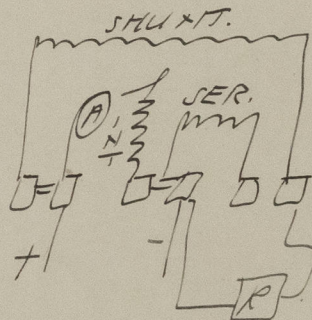 SHUNT.
A
INT
SER.
+
-
R